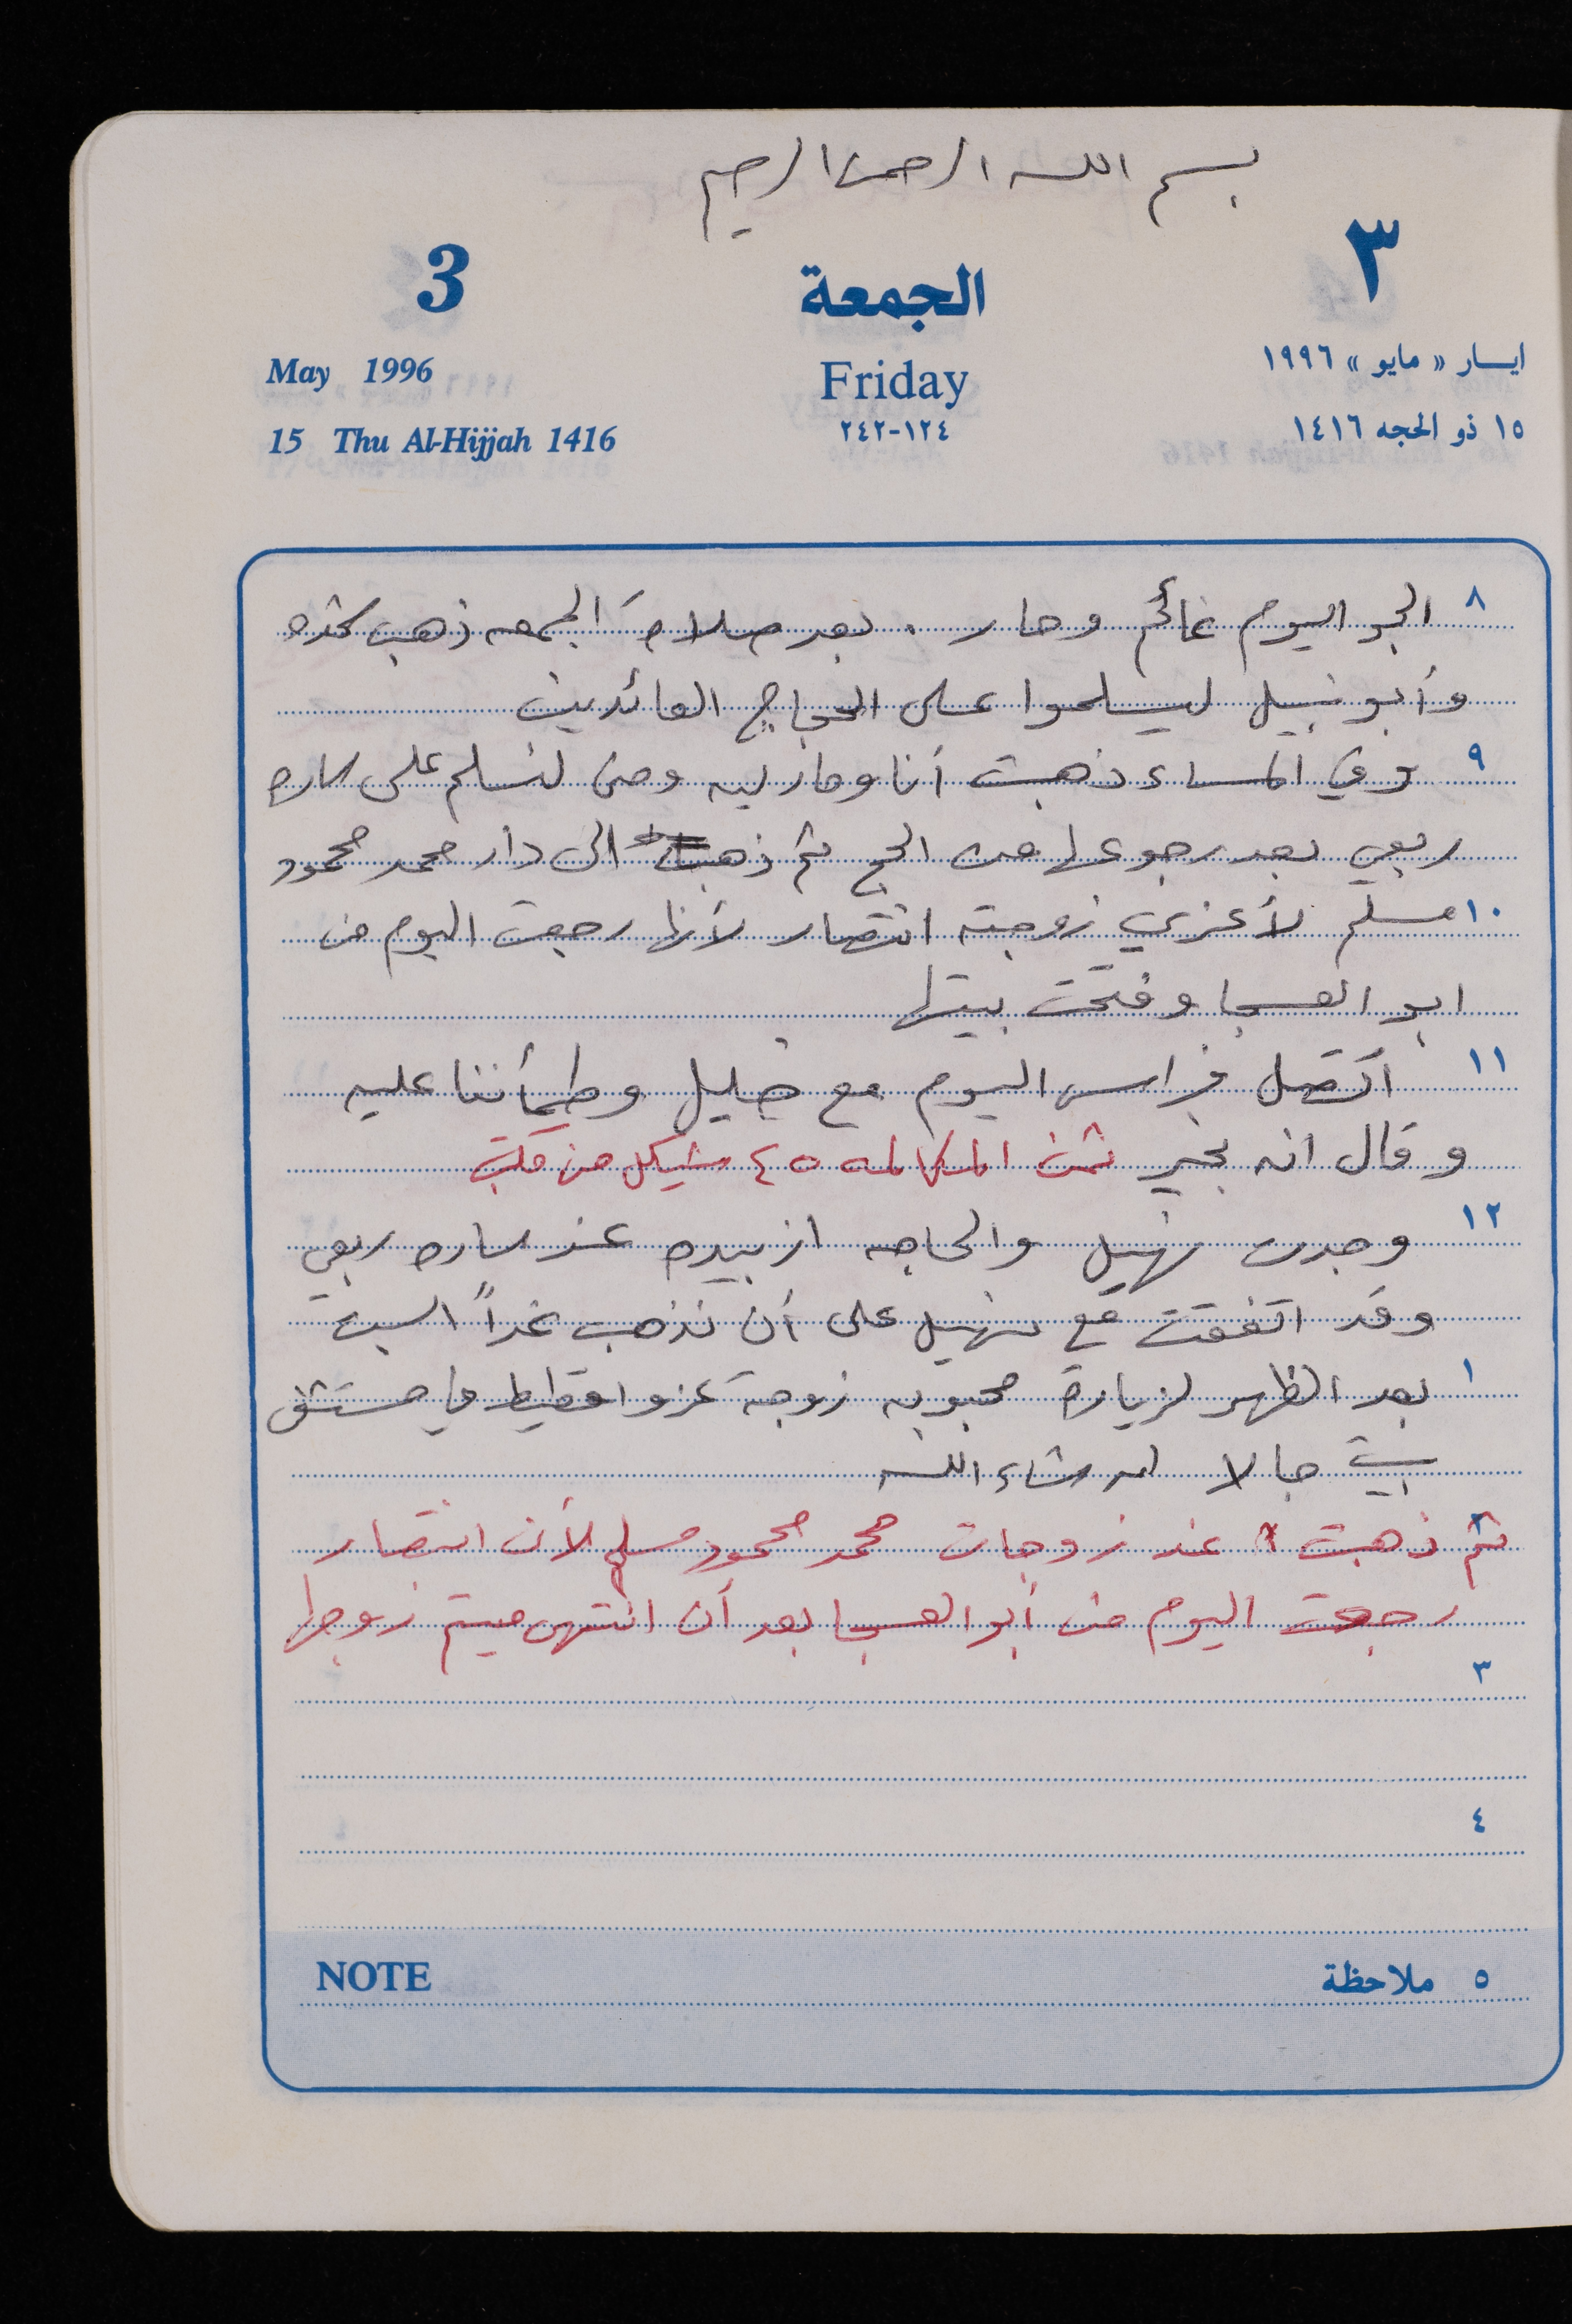 بسم الله الرحمن الرحيم
3 الجمعة ٣
May 1996 Friday ايسار « مايو » ١٩٩٦
15 Thu Al-Hijjah 1416 ١٢٤-٢٤٢ ١٥ ذو الحجه ١٤١٦
٨ الجو اليوم غائم وحار . بعد صلاة الجمعه ذهب
وأبو نبيل ليسلموا على الحجاج العائدين
٩ وفي المساء ذهبت أنا ومازليه ومنى لنسلم على ساره
ربعي بعد رجوعها من الحج ثم ذهبت الى دار محمد محمود
١٠ مسلم لأعزي زوجته انتصار لأنها رجعت اليوم من
ابو العسجا وفتحت بيتها
١١ اتصل فراس اليوم مع خليل وطمأننا عليه
وقال انه بخير ثمن المكالمه ٤٥ شيكل من
١٢ وجدت نهيل والحاجه ازبيده عند ساره ربعي
وقد اتفقت مع نهيل على أن نذهب غداً السبت
١ بعد الظهر لزيارة محبوبه زوجة عزو اقطيط في مستشفى
بيت جالا ان شاء الله
٢ ثم ذهبت عند زوجات محمد محمود مسلم لأن انتصار
رجعت اليوم من أبو العسجا بعد أن انتهى ميتم زوجها
٣
٤
NOTE ٥ ملاحظة